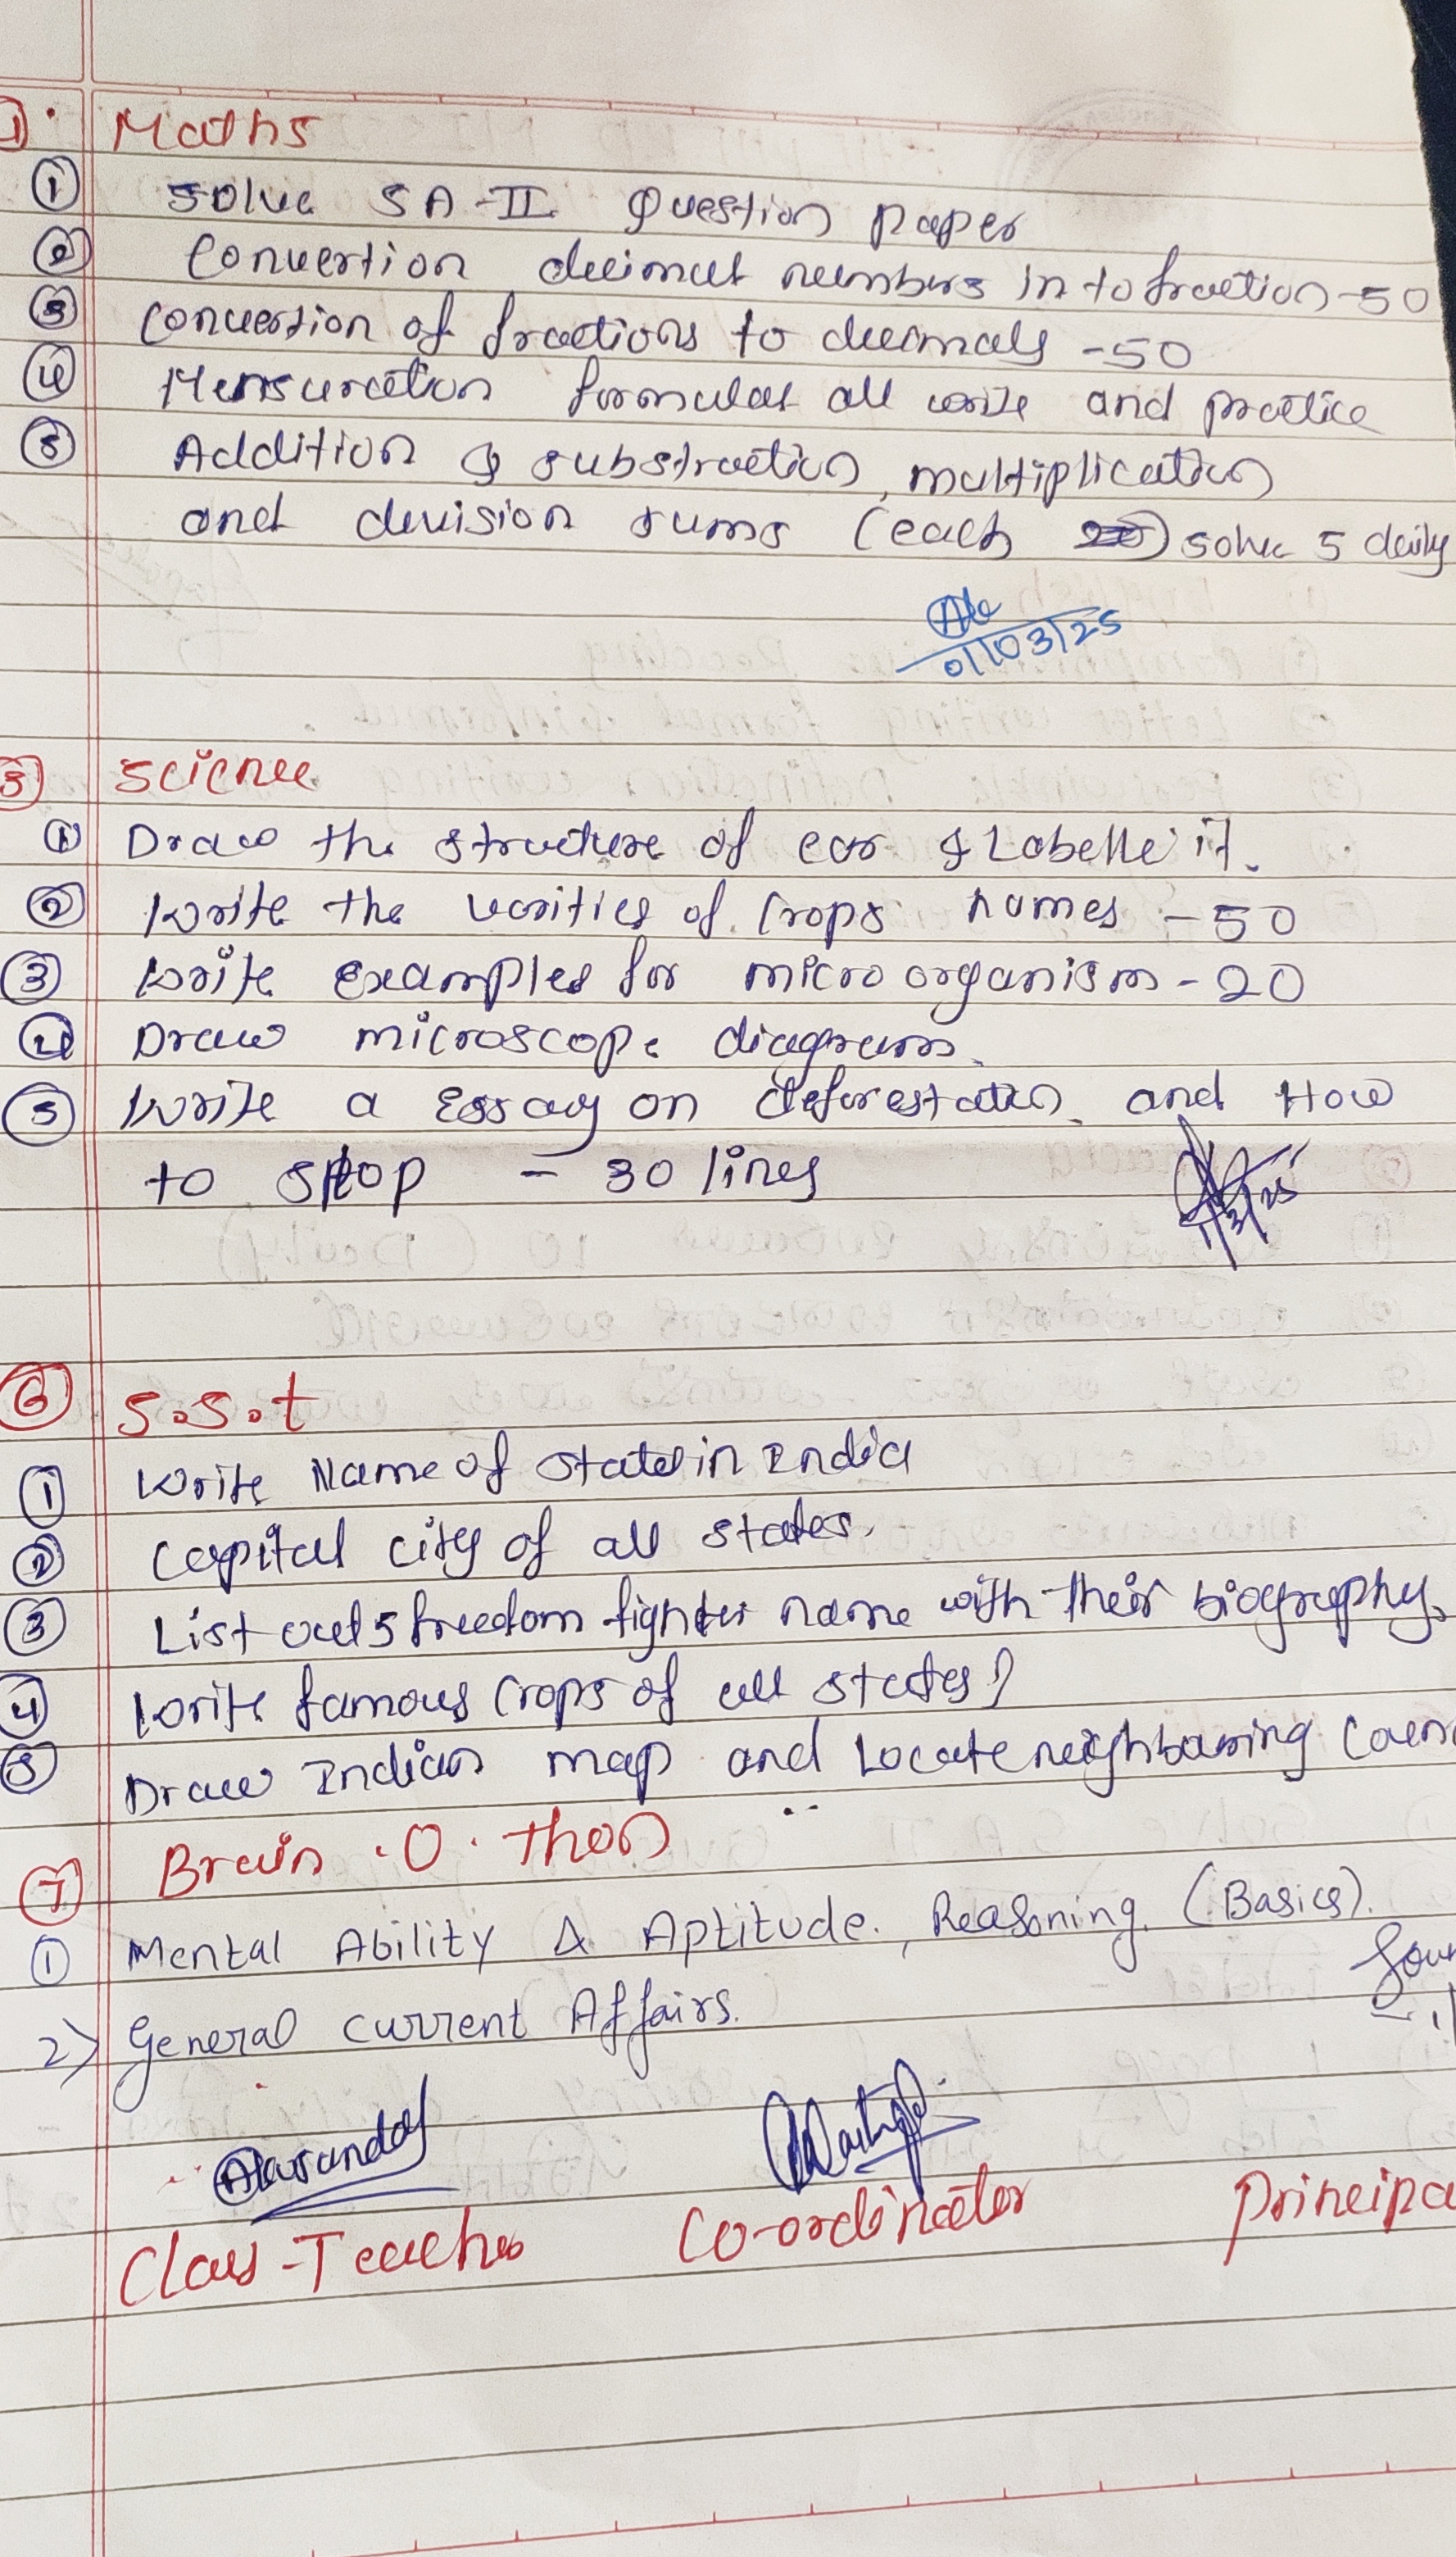 Maths
① Solve SA-II Question paper
② Convertion decimal numbers in to fraction-50
③ Convertion of fractions to decimals -50
④ Mensuration formulas all write and practice
⑤ Addition & substraction, multiplication
and division sums (each 20) solve 5 daily
01/03/25
Science
① Draw the structure of ear & Labelle it.
② Write the varities of Crops names -50
③ Write Examples for micro organism -20
④ Draw microscope diagram.
⑤ Write a Essay on deforestation and How
to stop - 30 lines
1/3/25
⑥ S.S.t
① Write Name of States in India
② Capital city of all states.
③ List out 5 freedom fighter name with their biography.
④ Write famous Crops of all states?
⑤ Draw Indian map and Locate neighbouring
⑦ Brain.O.thon
① Mental Ability & Aptitude., Reasoning. (Basics).
2) General current Affairs.
Class-Teacher Co-ordinator Principa